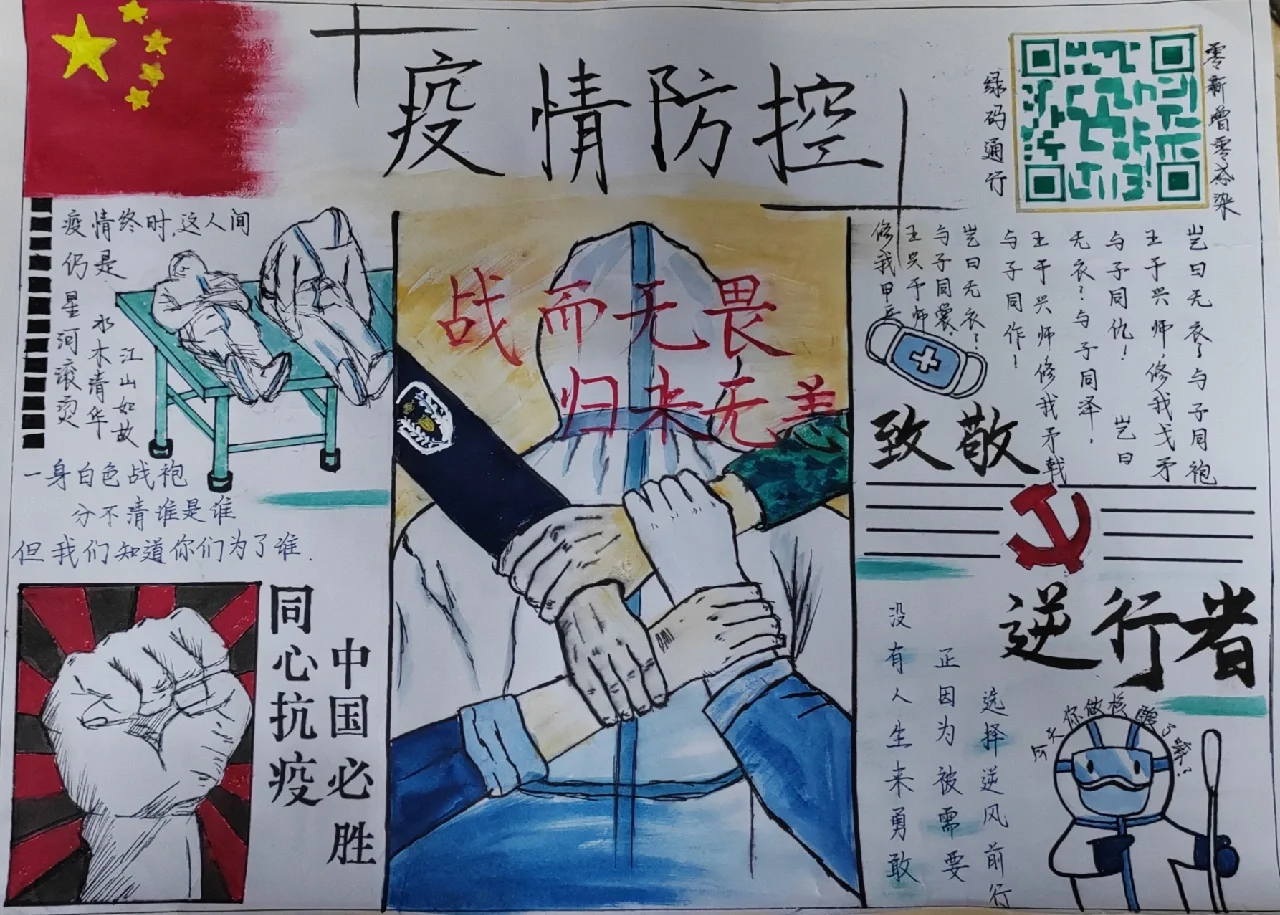 疫情防控
绿码通行
零新增零感染
疫情终时,这人间
仍是
星河滚烫
水木清华
江山如故
一身白色战袍
分不清谁是谁
但我们知道你们为了谁.
同心抗疫
中国必胜
战而无畏
归来无恙
岂曰无衣?与子同袍
王于兴师,修我戈矛
与子同仇! 岂曰
无衣?与子同泽,
王于兴师修我矛戟
与子同作!
岂曰无衣?
与子同裳
王兴于师
修我甲
致敬
逆行者
没有人生来勇敢
正因为被需要
选择逆风前行
今天你做核酸了嘛